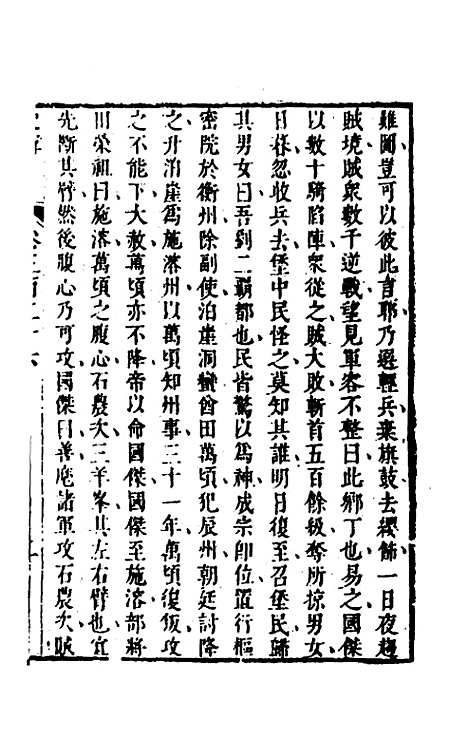 雖國豈可以彼此言耶乃選輕兵棄旗鼓去纓飾一日夜趨
賊境賊衆數千逆戰望見軍容不整曰此鄉丁也易之國傑
以數十騎陷陣衆從之賊大敗斬首五百餘級奪所掠男女
日暮忽收兵去堡中民怪之莫知其誰明日復至召堡民歸
其男女曰吾劉二霸都也民皆驚以爲神成宗卽位置行樞
密院於衡州除副使泊崖洞蠻酋田萬頃犯辰州朝廷討降
之升泊崖爲施溶州以萬頃知州事三十一年萬頃復叛攻
之不能下大赦萬頃亦不降帝以命國傑國傑至施溶部將
田榮祖曰施溶萬頃之腹心石農次三羊峯其左右臂也宜
先斷其臂然後腹心乃可攻國傑曰善麾諸軍攻石農次賊